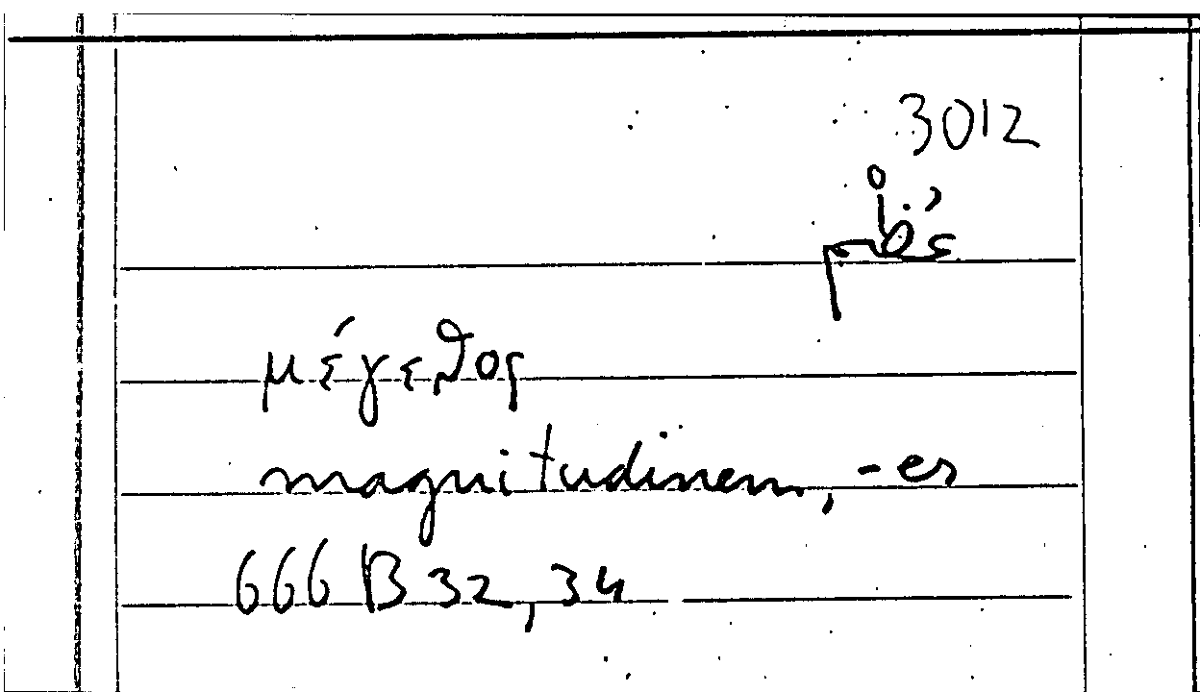 3012
عُظْم
μέγεθος
magnitudinem, -es
666 B 32, 34